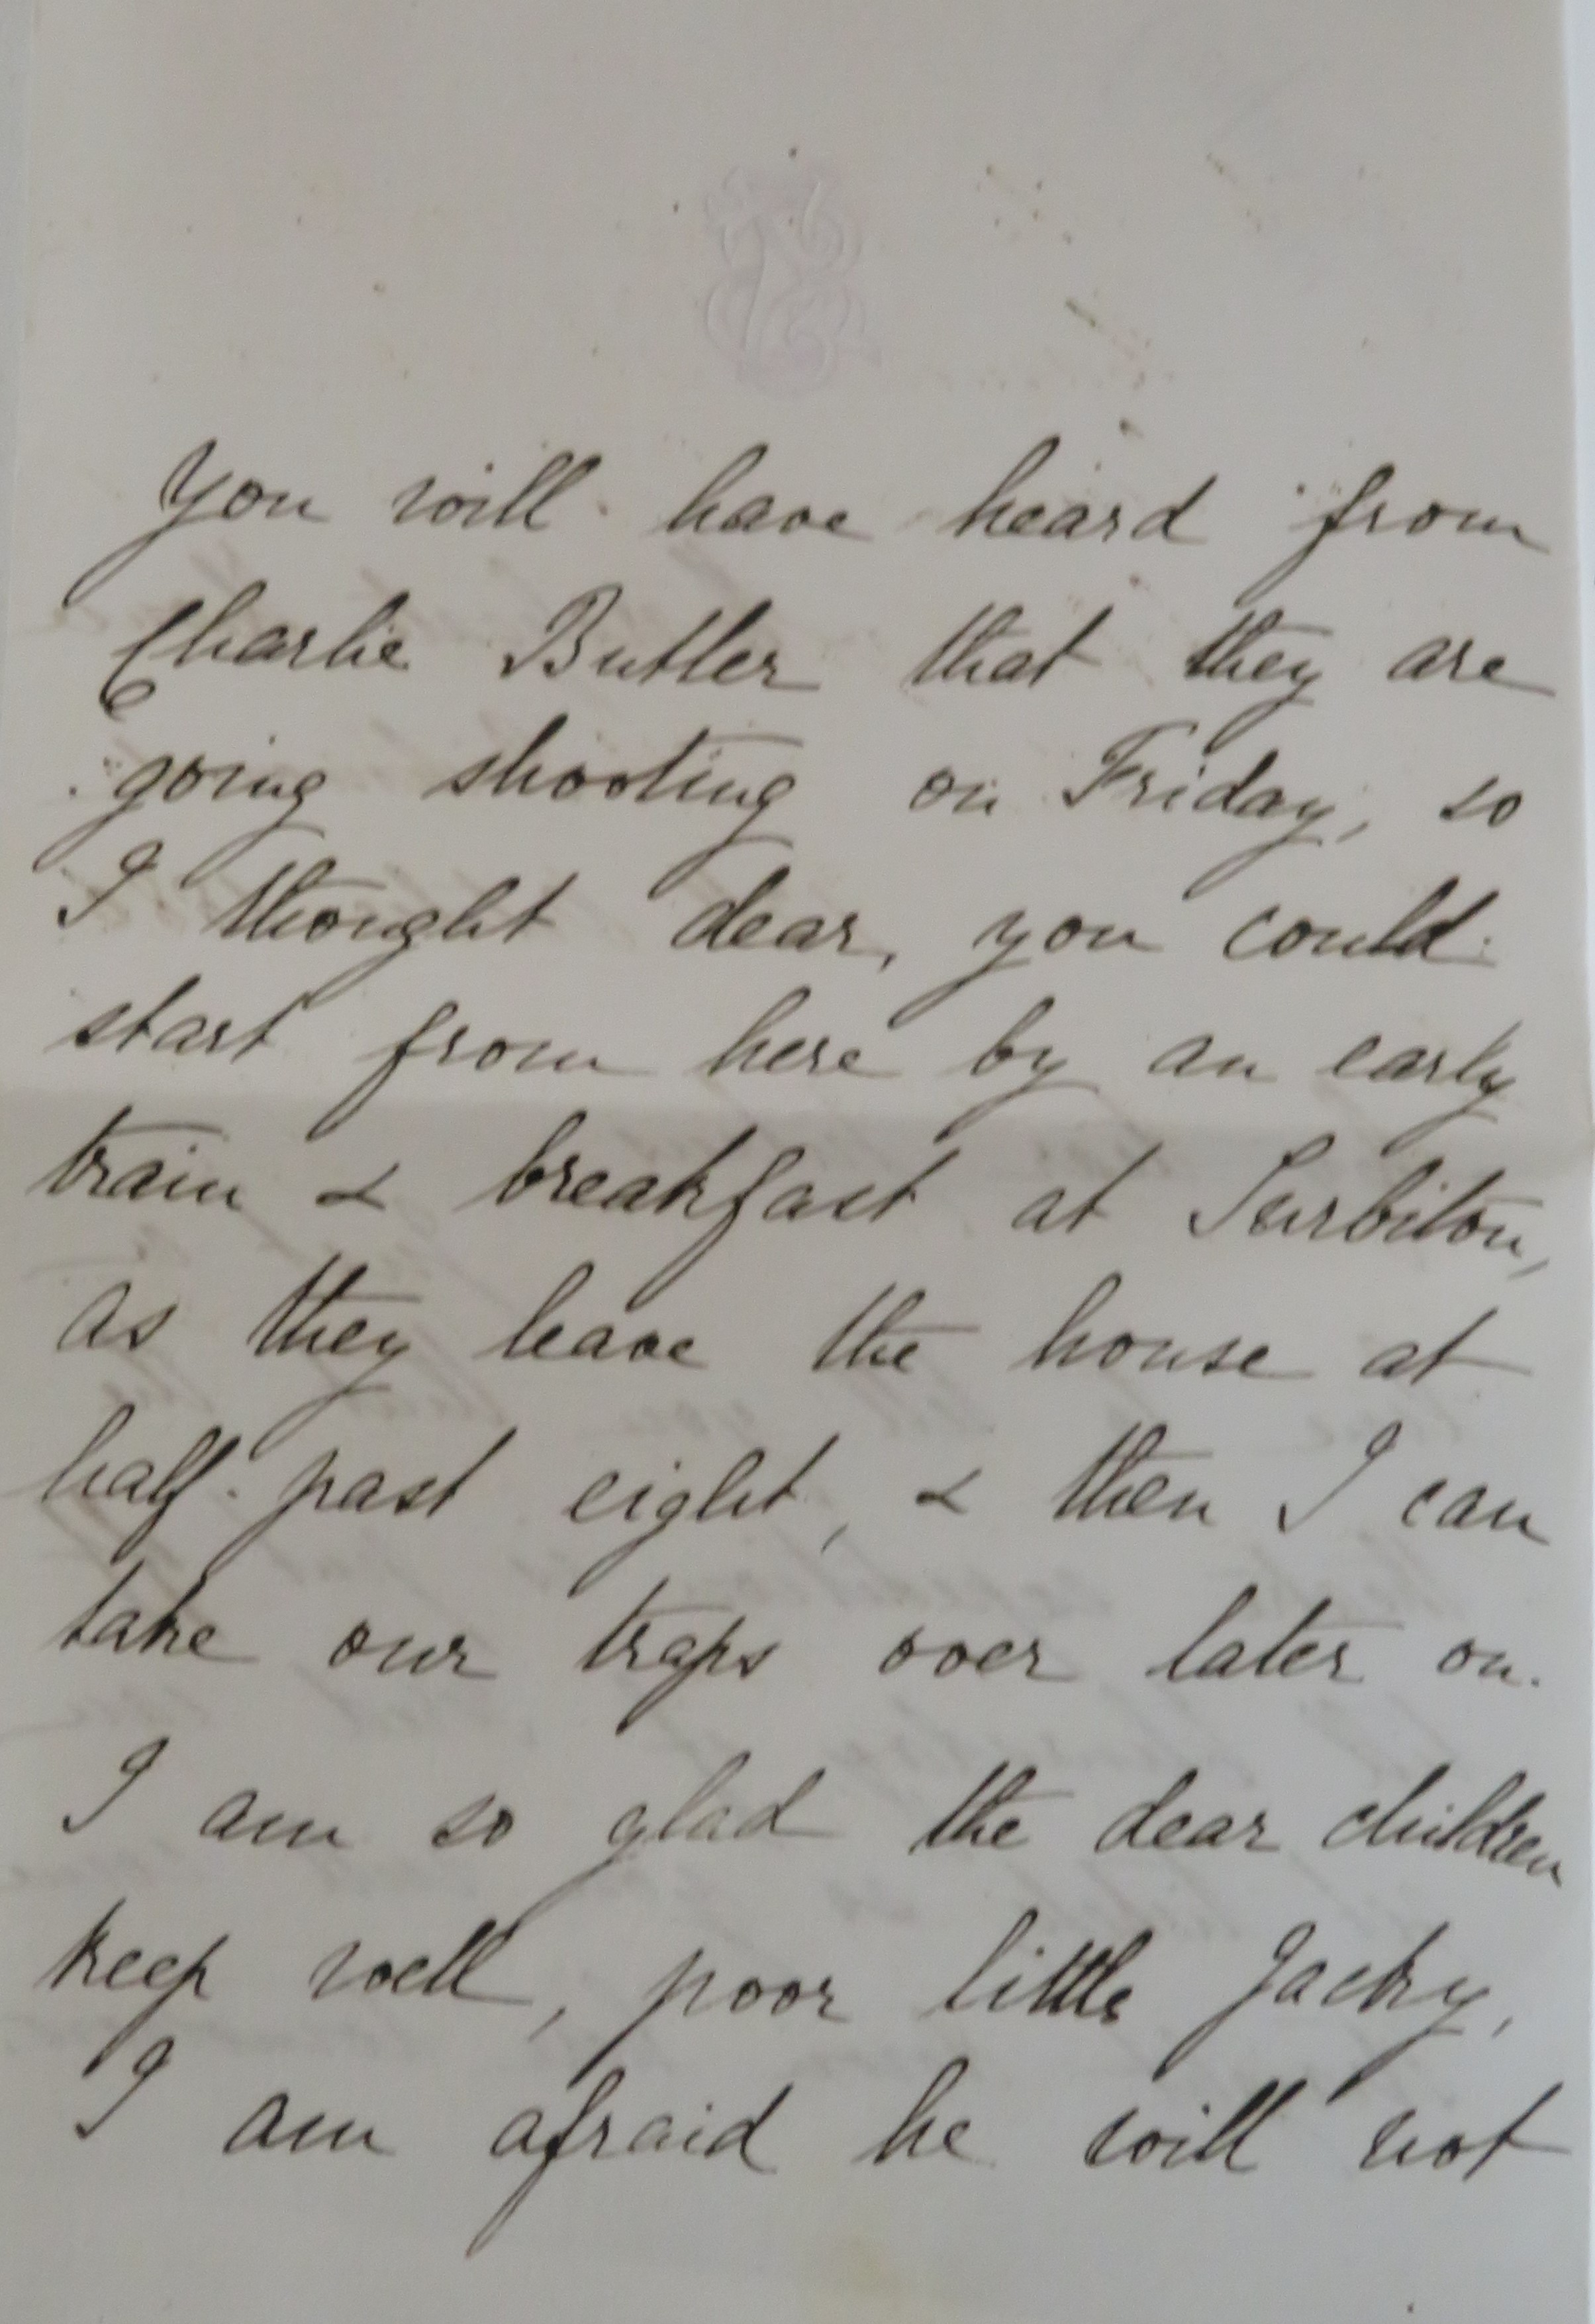 You will have heard from
Charlie Butler that they are
going shooting on Friday, so
I thought dear, you could
start from here by an early
train & breakfast at Surbiton,
as they leave the house at
half past eight, & then I can
take our traps over later on.
I am so glad the dear children
keep well, poor little Jacky,
I am afraid he will not